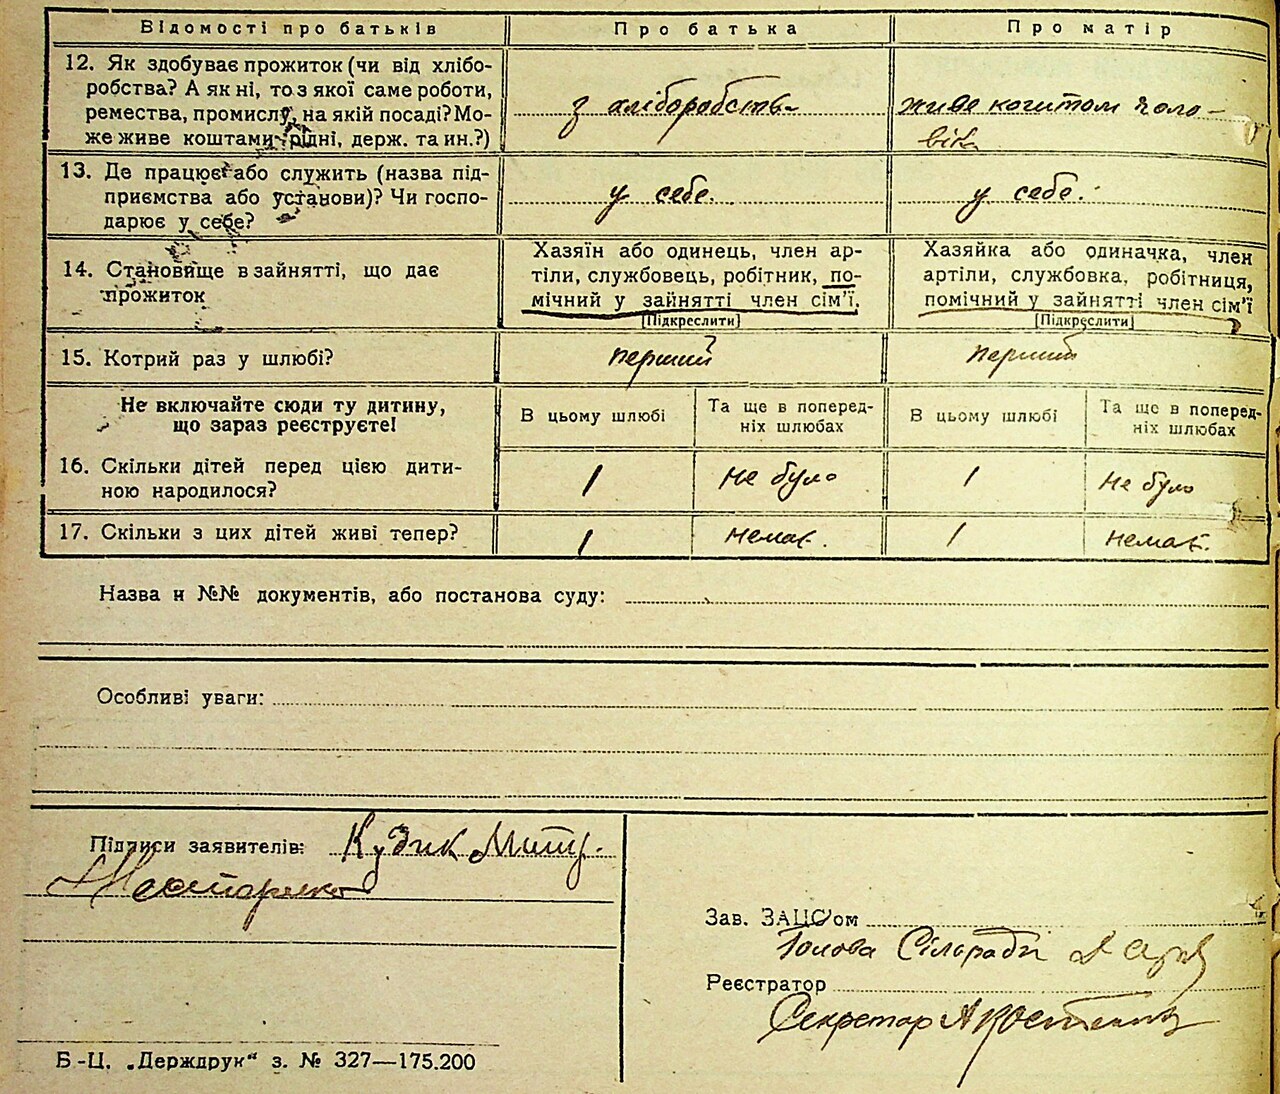 Відомості про батьків Про батька Про матір
12. Як здобуває прожиток (чи від хлібо-
робства? А як ні, то з якої саме роботи,
ремества, промислу, на якій посаді? Мо-
же живе коштами рідні, держ. та ин.?)
з хліборобства
живе коштом чоло-
віка
13. Де працює або служить (назва під-
приємства або установи)? Чи госпо-
дарює у себе?
у себе.
у себе.
14. Становище в зайнятті, що дає
прожиток
Хазяїн або одинець, член ар-
тіли, службовець, робітник, по-
мічний у зайнятті член сім'ї.
[Підкреслити]
Хазяйка або одиначка, член
артіли, службовка, робітниця,
помічний у зайнятті член сім'ї
[Підкреслити]
15. Котрий раз у шлюбі? перший перший
Не включайте сюди ту дитину,
що зараз реєструєте!
В цьому шлюбі
Та ще в поперед-
ніх шлюбах
В цьому шлюбі
Та ще в поперед-
ніх шлюбах
16. Скільки дітей перед цією дити-
ною народилося?
1 не було 1 не було
17. Скільки з цих дітей живі тепер? 1 немає. 1 немає.
Назва и №№ документів, або постанова суду:
Особливі уваги:
Підписи заявителів: Кудик Митр.
Зав. ЗАЦС'ом
Голова Сільради
Реєстратор
Секретар
Б-Ц. „Держдрук“ з. № 327—175.200